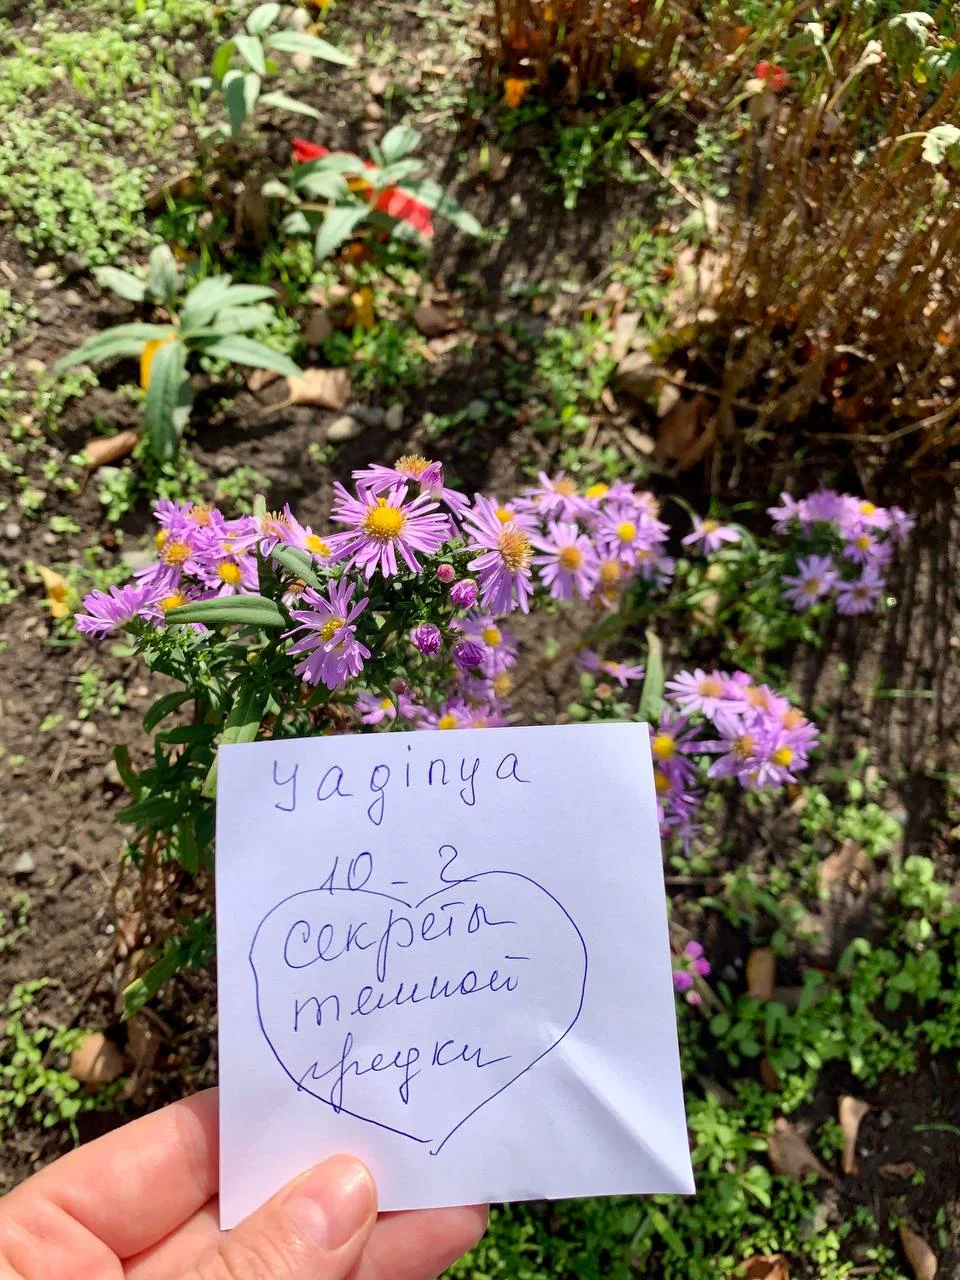 yaginya
10-2
Секреты
темной
гредки